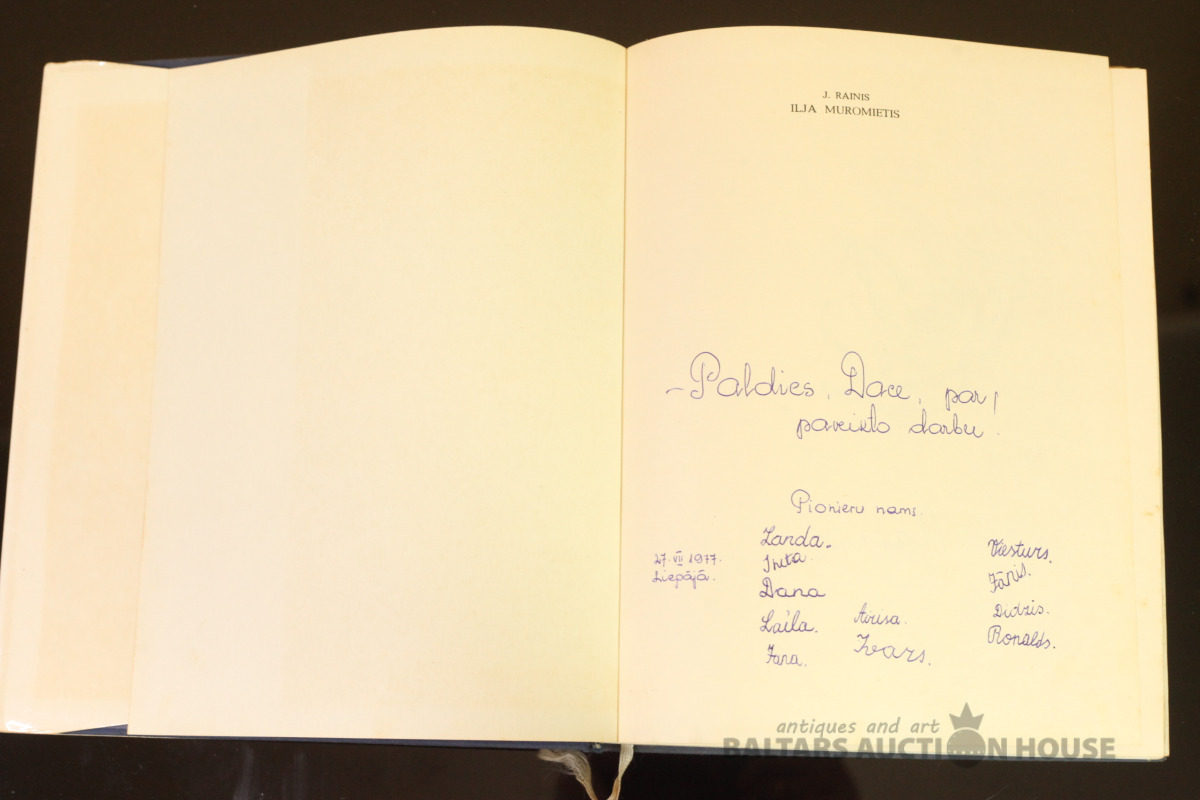 J. RAINIS
ILJA MUROMIETIS
– Paldies, Dace, par
paveikto darbu!
Pionieru nams.
27. VII 1977.
Liepājā.
Landa.
Inita.
Dana
Laila.
Jana.
Airisa.
Ivars.
Viesturs.
Jānis.
Didzis.
Ronalds.
antiques and art
BALTARS AUCTION HOUSE